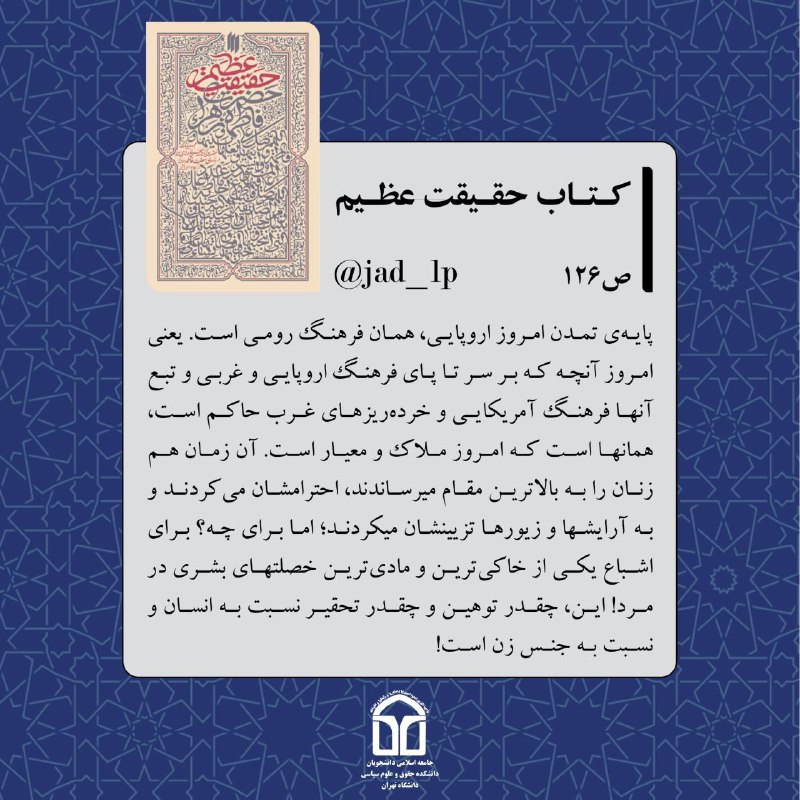 حقیقت عظیم
حضرت
فاطمه زهرا
کتاب حقیقت عظیم
ص۱۲۶
@jad_lp
پایه‌ی تمدن امروز اروپایی، همان فرهنگ رومی است. یعنی
امروز آنچه که بر سر تا پای فرهنگ اروپایی و غربی و تبع
آنها فرهنگ آمریکایی و خرده‌ریزهای غرب حاکم است،
همانها است که امروز ملاک و معیار است. آن زمان هم
زنان را به بالاترین مقام میرساندند، احترامشان می‌کردند و
به آرایشها و زیورها تزیینشان میکردند؛ اما برای چه؟ برای
اشباع یکی از خاکی‌ترین و مادی‌ترین خصلتهای بشری در
مرد! این، چقدر توهین و چقدر تحقیر نسبت به انسان و
نسبت به جنس زن است!
جامعه اسلامی دانشجویان
دانشکده حقوق و علوم سیاسی
دانشگاه تهران